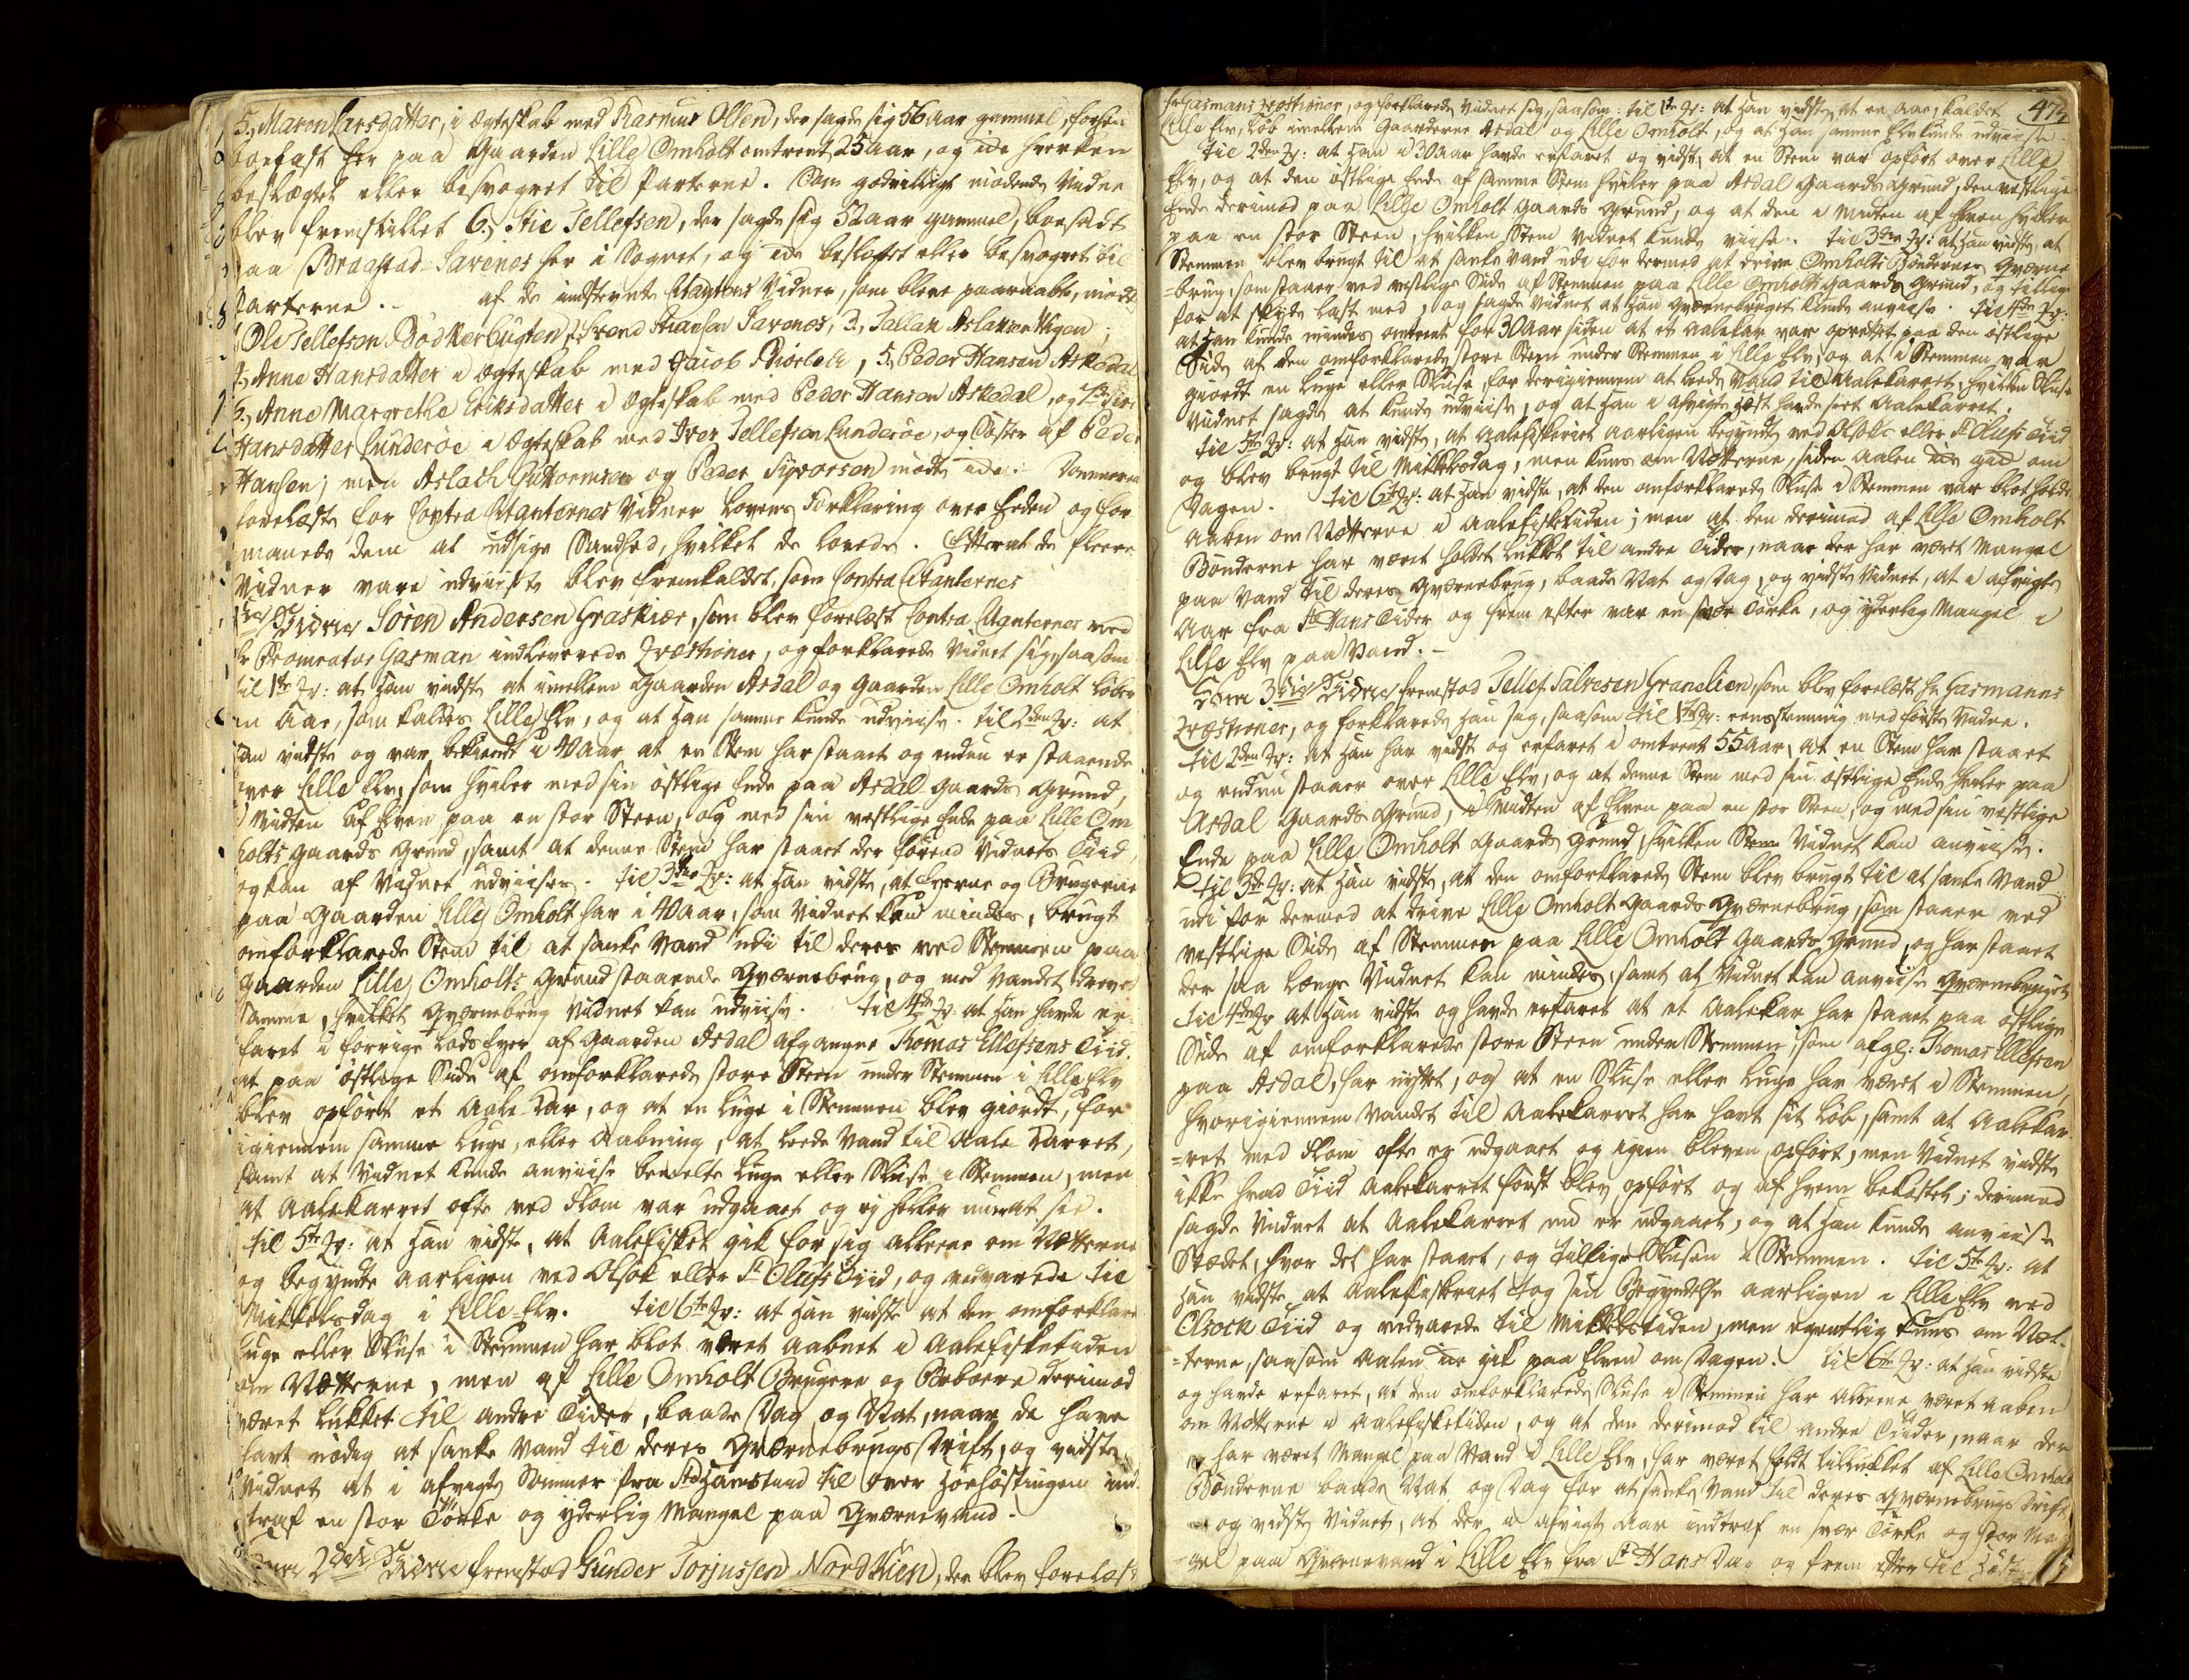 5, Maren Larsdatter, i ægteskab med Rasmus Olsen, der sagde sig 56 Aar gammel, forhen
boefast her paa Gaarden Lille Omholt omtrent 25 Aar, og ide hverken
beslægtet eller besvogret til Parterne. Som godvilligt mødende Vidne
blev fremstillet 6, Stie Tellefsen, der sagde sig 52 aar gammel, boesadt
paa Braastad-Savenes her i Sognet, og ide beslægtet eller besvogret til
Parterne. - af de indstevnte Citantens Vidner, som bleve paaraabte, mødte
Ole Tellefsen Bødkerbugten, 2, Svend Hansen Savenes, 3, Tallak Aslaksen Vigen;
4, Anne Hansdatter i ægteskab med Jacob Biørbek, 5, Peder Hansen Askedal
6, Anne Margrethe Eriksdatter i ægteskab med Peder Hansen Askedal, og 7,
Hansdatter Lunderöe i ægteskab med Iver Tellefsen Lunderöe, og Søster af Peder
Hansen; men Aslach Guttormsen og Peder Sigvorsen mødte ide. Dommeren
forelæste for Contra Citanternes Vidner Lovens Forklaring over Eeden og for
manede dem at udsige Sandhed, hvilket de lovede. Efterat de fleere
Vidner vare udviiste blev fremkaldet, som Contra Citanternes
1ste Vidne Sören Andersen Graskiær, som blev forelæst Contra Citanternes ved
Hr Procurator Gasman indleverede Qvæstioner, og forklarede Vidnet sig, saasom
til 1ste Qv: at han vidste at imellem Gaarden Asdal og Gaarden Lille Omholt løber
en Aae, som kaldes Lille Elv, og at han samme kunde udviise. til 2den Qv: at
han vidste og var bekiendt i 40 Aar at en Stem har staaet og endnu er staaende
over Lille Elv, som hviler med sin østlige Ende paa Asdal Gaards Grund,
i Midten af Elven paa en stor Steen, og med sin vestlige Ende paa Lille Om
holts Gaards Grund, samt at denne Stem har staaet der førend Vidnets Tiid
og kan af Vidnet udviises. til 3die Qv: at han vidste, at Eyerne og Brugerne
paa Gaarden Lille Omholt har i 40 Aar, som Vidnet kan mindes, brugt
omforklarede Stem til at sanke Vand udi til deres ved Stemmen paa
Gaarden Lille Omholts Grund staaende Qværnebrug, og med Vandet drevet
samme, hvilket Qværnebrug Vidnet kan udviise. til 4de Qv: at han havde er
faret i forrige Lods Eyer af Gaarden Asdal afgangne Thomas Ellefsens Tiid,
at paa østlige Side af omforklarede store Steen under Stemmen i Lille Elv
blev opført et Aale Kar, og at en Luge i Stemmen blev giordt, for
igiennem samme Luge, eller Aabning, at leede Vand til Aale Karret,
samt at Vidnet kunde anviise bemelte Luge eller Sluse i Stemmen, men
at Aalekarret ofte ved Flom var udgaaet og ey heller nu at see.
til 5te Qv: at han vidste, at Aalefisket gik for sig alleene om Nætterne
og begyndte aarligen ved Olsok eller St Olufs Tiid, og vedvarede til
Mikkelsdag i Lille Elv. til 6te Qv: at han vidste at den omforklare
Luge eller Sluse i Stemmen har blot været aabnet i Aalefisketiden
om Nætterne, men af Lille Omholt Brugere og Beboere derimod
været lukket til andre Tider, baade Dag og Nat, naar de have
havt nødig at sanke Vand til deres Qværnebrugs Drift, og vidste
Vidnet at i afvigte Sommer fra St Hanstiid til over Høehøstingen ind
traf en stor Tørke og yderlig Mangel paa Qværnevand.
Som 2det Vidne fremstod Gunder Torjussen Nordliien, der blev forelæst
472
Hr Gasmans Qvæstioner, og forklarede Vidnet sig, saasom: til 1te Qv: at han vidste at en Aae, kaldet
Lille Elv, løb imellem Gaarderne Asdal og Lille Omholt, og at han samme Elv kunde udviise.
til 2den Qv: at han i 30 Aar havde erfaret og vidst, at en Stem var opført over Lille
Elv, og at den østlige Ende af samme Stem hviler paa Asdal Gaards Grund, den vestlige
Ende derimod paa Lille Omholt Gaards Grund, og at den i Midten af Elven hviler
paa en stor Steen, hvilken Stem Vidnet kunde viise. til 3die Qv: at han vidste at
Stemmen blev brugt til at sanke Vand udi for dermed at drive Omholts Bøndernes Qværne
-brug, som staaer ved vestlige Side af Stemmen paa Lille Omholts Gaards Grund, og tillige
for at skyde Last med, og sagde Vidnet at han Qværnebruget kunde anviise. til 4de Qv:
at han kunde mindes omtrent for 30 Aar siden at et Aalekar var oprettet paa den østlige
Side af den omforklarede store Steen under Stemmen i Lille Elv, og at i Stemmen var
giordt en Luge eller Sluse, for derigiennem at leede Vand til Aalekarret, hvilken Sluse
Vidnet sagde at kunde udviise, og at han i afvigte Høst havde seet Aalekarret.
til 5te Qv: at han vidste, at Aalefiskeriet aarligen begyndte ved Olsoks eller St Olufs Tiid
og blev brugt til Mikkelsdag, men kuns om Nætterne, siden Aalen ide gik om
Dagen. til 6te Qv: at han vidste, at den omforklarede Sluse i Stemmen var blot holdt
aaben om Nætterne i Aalefisketiden; men at den derimod af Lille Omholt
Bønderne har været holdet lukket til andre Tider, naar der har været Mangel
paa Vand til deres Qværnebrug, baade Nat og Dag, og vidste Vidnet, at i afvigte
Aar fra St Hans Tider og frem efter var en svær Tørke, og yderlig Mangel i
Lille Elv paa Vand. -
Som 3die Vidne fremstod Tellef Salvesen Granelien, som blev forelæst Hr Gasmans
Qvæstioner, og forklarede han sig, saasom til 1te Qv: eensstemmig med første Vidne.
til 2den Qv: at han har vidst og erfaret i omtrent 55 Aar, at en Stem har staaet
og endnu staaer over Lille Elv, og at denne Stem med sin østlige Ende hviler paa
Asdal Gaards Grund, i Midten af Elven paa en stor Steen, og med sin vestlige
Ende paa Lille Omholt Gaards Grund, hvilken Stem Vidnet kan anviise.
til 3die Qv: at han vidste, at den omforklarede Stem blev brugt til at sanke Vand
udi for dermed at drive Lille Omholt Gaards Qværnebrug, som staaer ved
vestlige Side af Stemmen paa Lille Omholt Gaards Grund, og har staaet
der saa længe Vidnet kan mindes, samt at Vidnet kan anviise Qværnebruget
til 4de Qv at han vidste og havde erfaret at et Aalekar har staaet paa østlige
Side af omforklarede store Steen under Stemmen, som afg: Thomas Ellefsen
paa Asdal, har nyttet, og at en Sluse eller Luge har været i Stemmen,
hvorigiennem Vandet til Aalekarret har havt sit Løb, samt at Aalekar
-ret med Flom ofte er udgaaet og igien bleven opført, men Vidnet vidste
ikke hvad Tiid Aalekarret først blev opført og af hvem bekostet; derimod
sagde Vidnet at Aalekarret nu er udgaaet, og at han kunde anviise
Stædet, hvor det har staaet, og tillige Slusen i Stemmen. til 5te Qv: at
han vidste at Aalefiskeriet tog sin Begyndelse aarligen i Lille Elv ved
Olsock Tiid og vedvarede til Mikkelstiden, men egentlig kuns om Næt-
-terne, saasom Aalen ide gik paa Elven om Dagen. til 6te Qv: at han vidste
og havde erfaret, at den omforklarede Sluse i Stemmen har alleene været aaben
om Nætterne i Aalefisketiden, og at den derimod til andre Tiider, naar der
har været Mangel paa Vand i Lille Elv, har været holdt tillukket af Lille Omholt
Bønderne baade Nat og Dag for at sanke Vand til deres Qværnebrugs Drift,
og vidste Vidnet, at der i afvigte Aar indtraf en svær Tørke og stor Ma
-gel paa Qværnevand i Lille Elv fra St Hans Dag og frem efter til Høst